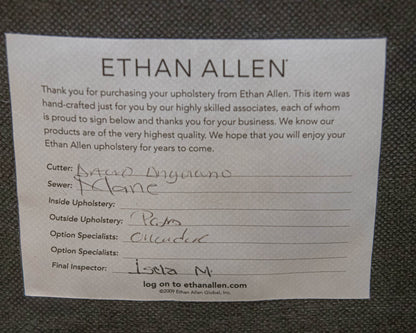 ETHAN ALLEN®
Thank you for purchasing your upholstery from Ethan Allen. This item was
hand-crafted just for you by our highly skilled associates, each of whom
is proud to sign below and thanks you for your business. We know our
products are of the very highest quality. We hope that you will enjoy your
Ethan Allen upholstery for years to come.
Cutter:
Sewer:
Inside Upholstery:
Outside Upholstery:
Option Specialists:
Option Specialists:
Final Inspector: Isela M.
log on to ethanallen.com
©2009 Ethan Allen Global, Inc.